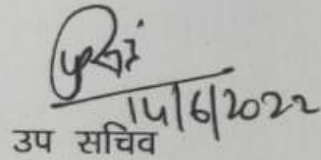 14/6/2022
उप सचिव